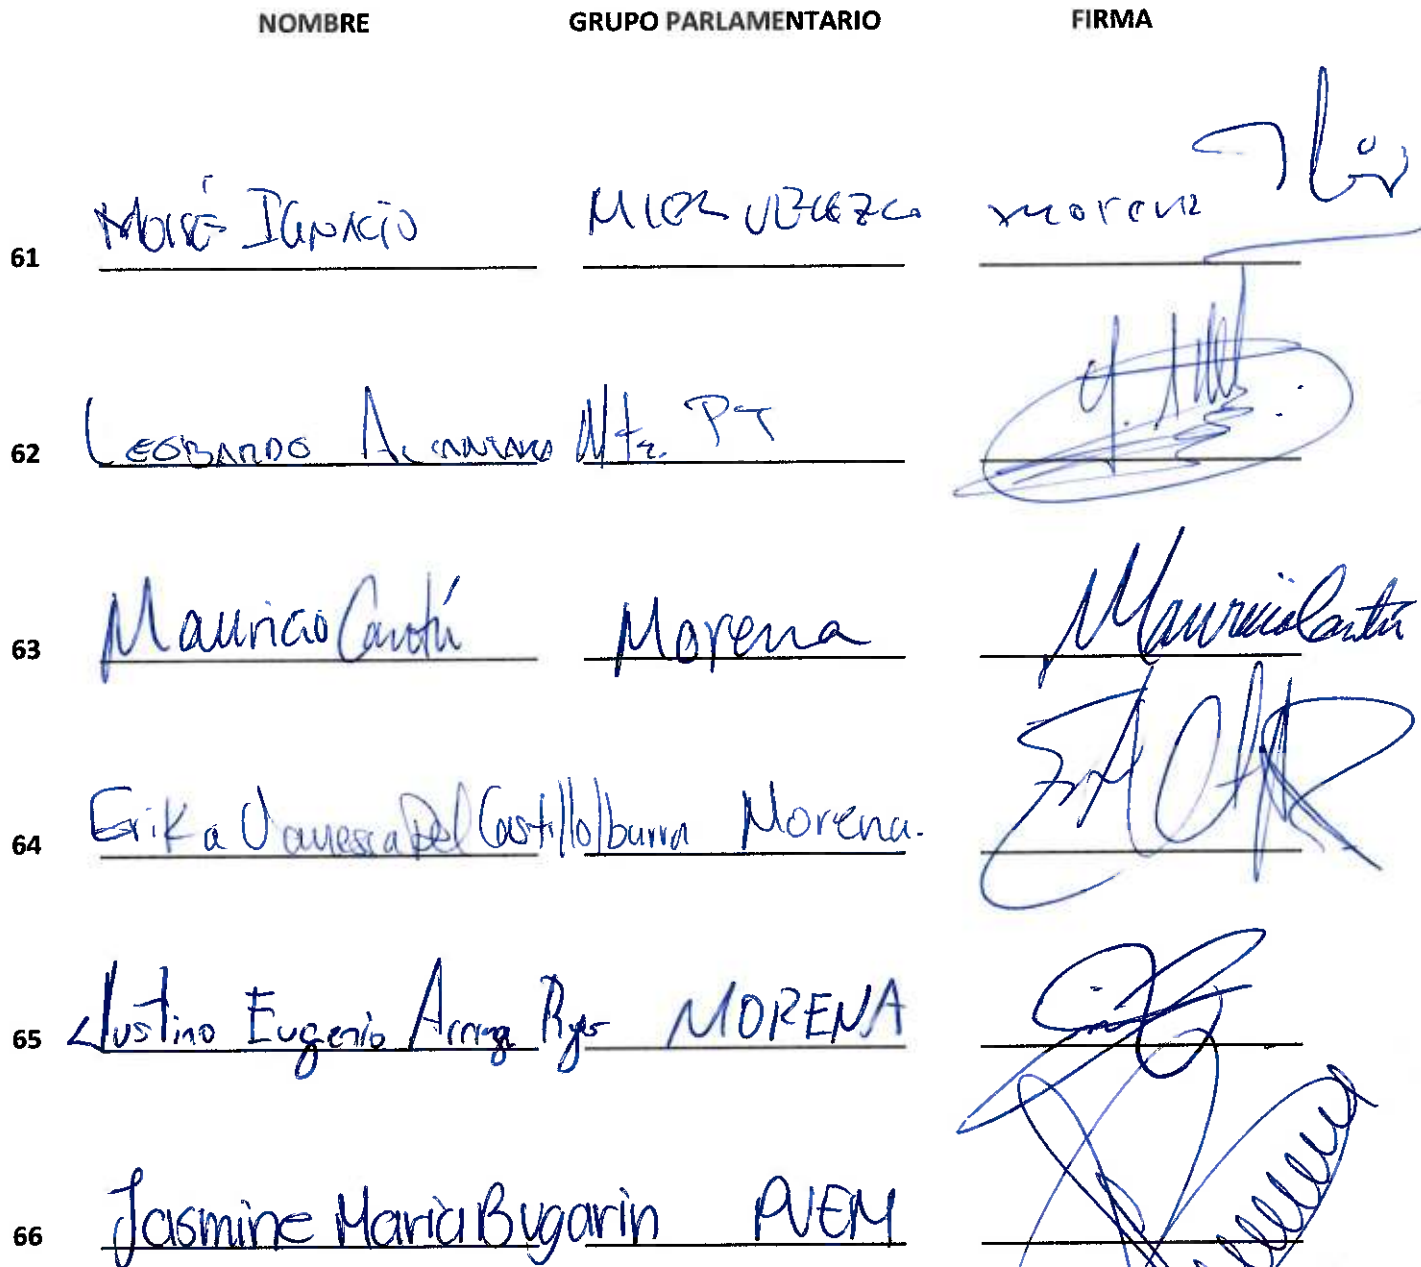 NOMBRE GRUPO PARLAMENTARIO FIRMA
61 Moisés Ignacio Mier Velazco morena
62 LEOBARDO ALCANTARA Mtz. PT
63 Mauricio Cantú Morena Mauricio Cantú
64 Erika Vanessa Del Castillo Ibarra Morena.
65 Justino Eugenio Arriaga Rojas MORENA
66 Jasmine María Bugarín PVEM